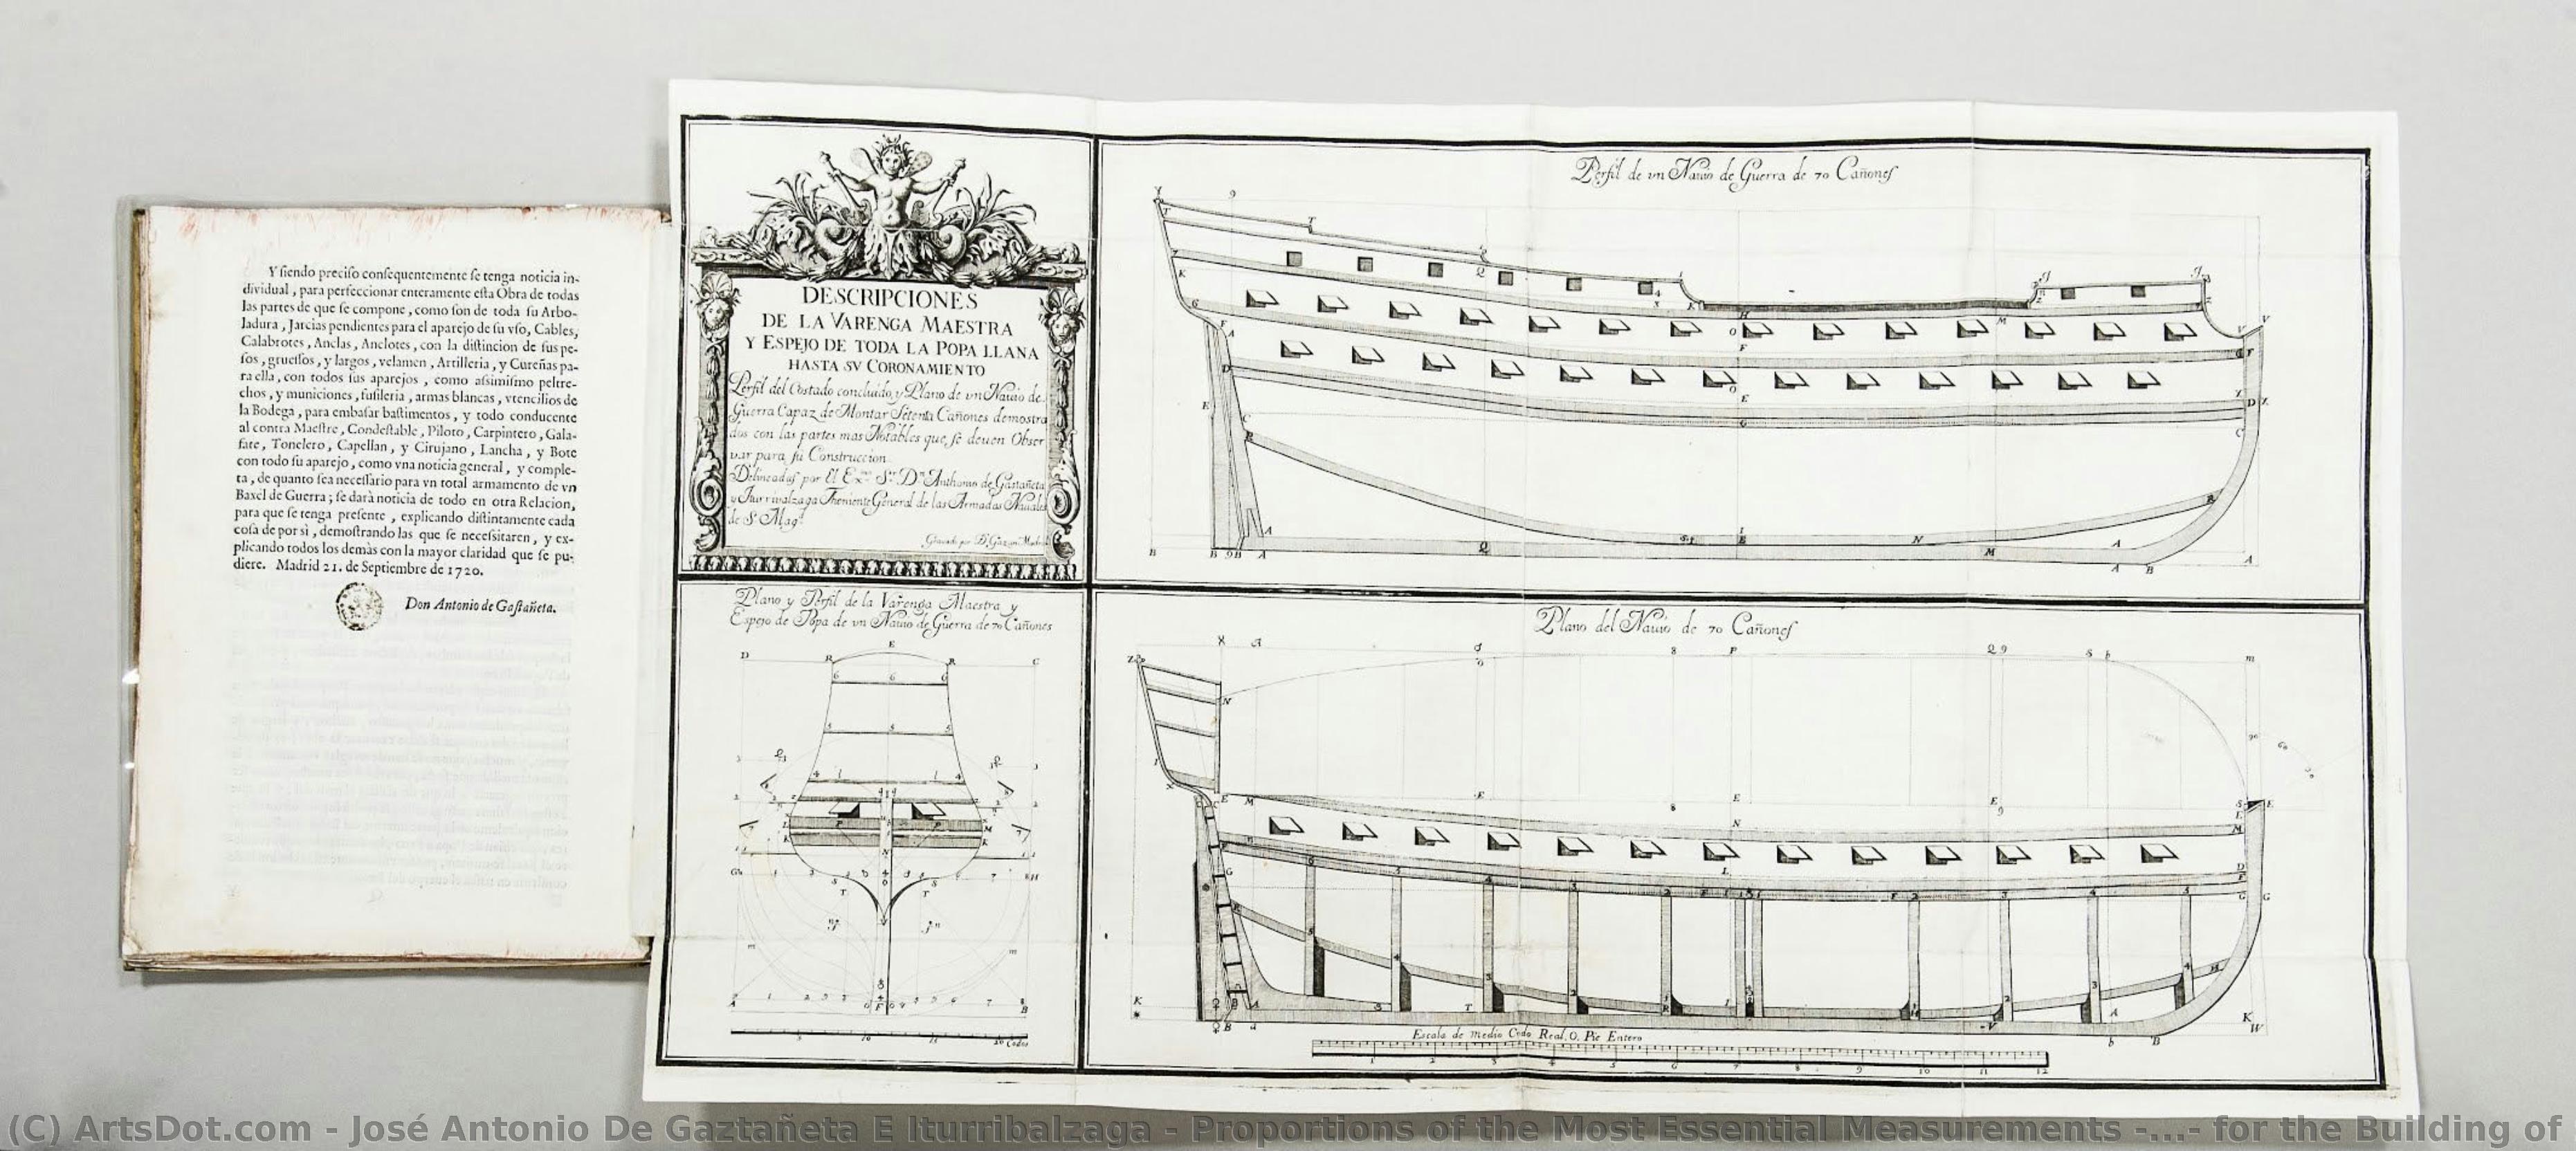 Y ſiendo preciſo conſequentemente ſe tenga noticia in-
dividual, para perfeccionar enteramente eſta Obra de todas
las partes de que ſe compone, como ſon de toda ſu Arbo-
ladura, Jarcias pendientes para el aparejo de ſu vſo, Cables,
Calabrotes, Anclas, Anclotes, con la diſtincion de ſus pe-
ſos, grueſſos, y largos, velamen, Artilleria, y Cureñas pa-
ra ella, con todos ſus aparejos, como aſsimiſmo peltre-
chos, y municiones, fuſileria, armas blancas, vtencilios de
la Bodega, para embaſar baſtimentos, y todo conducente
al contra Maeſtre, Condeſtable, Piloto, Carpintero, Gala-
fate, Tonelero, Capellan, y Cirujano, Lancha, y Bote
con todo ſu aparejo, como vna noticia general, y comple-
ta, de quanto ſea neceſſario para vn total armamento de vn
Baxel de Guerra; ſe darà noticia de todo en otra Relacion,
para que ſe tenga preſente, explicando diſtintamente cada
coſa de por sì, demoſtrando las que ſe neceſsitaren, y ex-
plicando todos los demàs con la mayor claridad que ſe pu-
diere. Madrid 21. de Septiembre de 1720.
Don Antonio de Gaſtañeta.
DESCRIPCIONES
DE LA VARENGA MAESTRA
Y ESPEJO DE TODA LA POPA LLANA
HASTA SV CORONAMIENTO
Perfil del Costado concluido, y Plano de vn Navio de
Guerra Capaz de Montar Setenta Cañones demostra
dos con las partes mas Notables que, se deuen Obser
var para su Construccion
Delineadas por El Ex.mo S.or D.n Anthonio de Gastañeta
y Iturrivalzaga Theniente General de las Armadas Navales
de S Mag.d
Perfil de vn Navio de Guerra de 70 Cañones
Plano y Perfil de la Varenga Maestra y
Espejo de Popa de vn Navio de Guerra de 70 Cañones
5 10 15 20 Codos
Plano del Navio de 70 Cañones
Escala de medio Codo Real, O, Pie Entero
1 2 3 4 5 6 7 8 9 10 11 12
(C) ArtsDot.com - José Antonio De Gaztañeta E Iturribalzaga - Proportions of the Most Essential Measurements -...- for the Building of